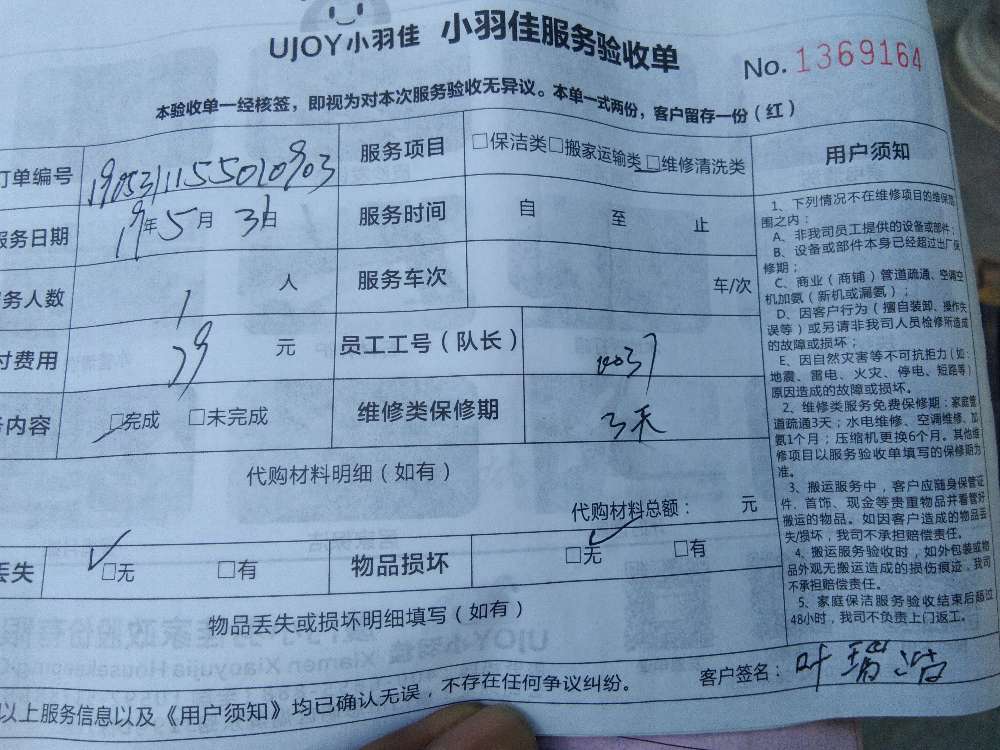 UJOY小羽佳 小羽佳服务验收单
No. 1369164
本验收单一经核签，即视为对本次服务验收无异议。本单一式两份，客户留存一份（红）
订单编号 190531155010903 服务项目 □保洁类□搬家运输类□维修清洗类
服务日期 19年5月31日 服务时间 自 至 止
务人数 1 人 服务车次 车/次
付费用 79 元 员工工号（队长） 0037
务内容 □完成 □未完成 维修类保修期 3天
代购材料明细（如有）
代购材料总额： 元
丢失 ✓□无 □有 物品损坏 ✓□无 □有
物品丢失或损坏明细填写（如有）
以上服务信息以及《用户须知》均已确认无误，不存在任何争议纠纷。 客户签名：叶瑞
用户须知
1、下列情况不在维修项目的维保范
围之内：
A、非我司员工提供的设备或部件；
B、设备或部件本身已经超过出厂保
修期；
C、商业（商铺）管道疏通、空调空
机加氨（新机或漏氨）；
D、因客户行为（擅自装卸、操作失
误等）或另请非我司人员检修所造成
的故障或损坏；
E、因自然灾害等不可抗拒力（如：
地震、雷电、火灾、停电、短路等）
原因造成的故障或损坏。
2、维修类服务免费保修期：家庭管
道疏通3天；水电维修、空调维修、加
氨1个月；压缩机更换6个月。其他维
修项目以服务验收单填写的保修期为
准。
3、搬运服务中，客户应随身保管证
件、首饰、现金等贵重物品并看管好
搬运的物品。如因客户造成的物品丢
失/损坏，我司不承担赔偿责任。
4、搬运服务验收时，如外包装或物
品外观无搬运造成的损伤痕迹，我司
不承担赔偿责任。
5、家庭保洁服务验收结束后超过
48小时，我司不负责上门返工。